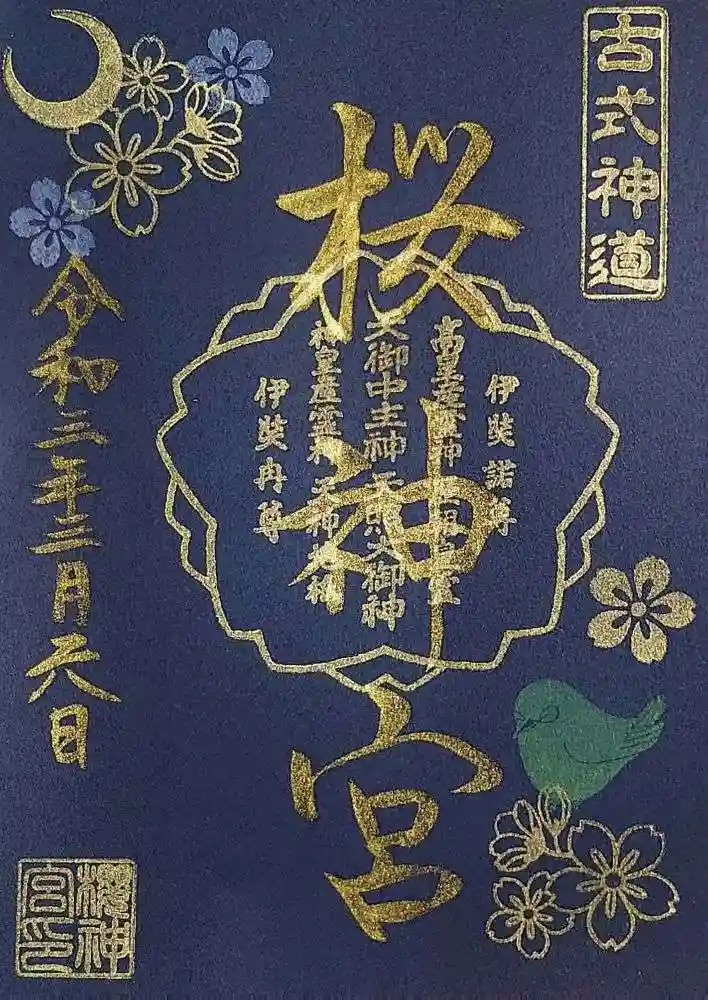 古式神道
桜神宮
伊弉諾尊
高皇産霊神
天御中主神 天照大御神
神皇産霊神 天神地祇
伊弉冉尊
令和三年三月六日
櫻神
宮印